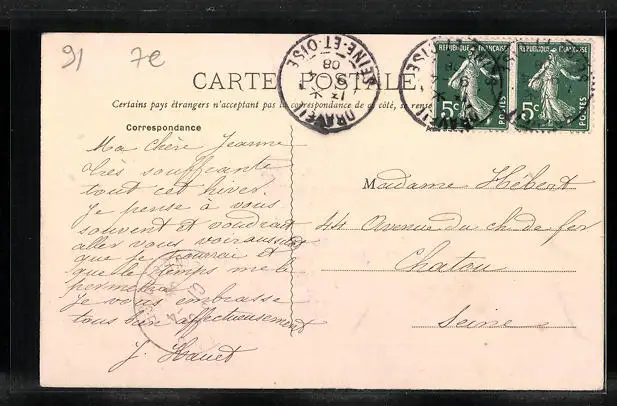 91 7e
CARTE POSTALE
Certains pays étrangers n'acceptent pas la correspondance de ce côté, se rense
Correspondance
REPUBLIQUE FRANÇAISE
5c
POSTES
REPUBLIQUE FRANÇAISE
5c
POSTES
DRAVEIL
SEINE-ET-OISE
08
Ma chère Jeanne
très souffrante
tout cet hiver.
Je pense à vous
souvent et voudrait
aller vous voir aussitôt
que je pourrai et
que le temps me le
permettra
Je vous embrasse
tous bien affectueusement
J. Hauet
Madame Hébert
44 Avenue du ch. de fer
Chatou
Seine